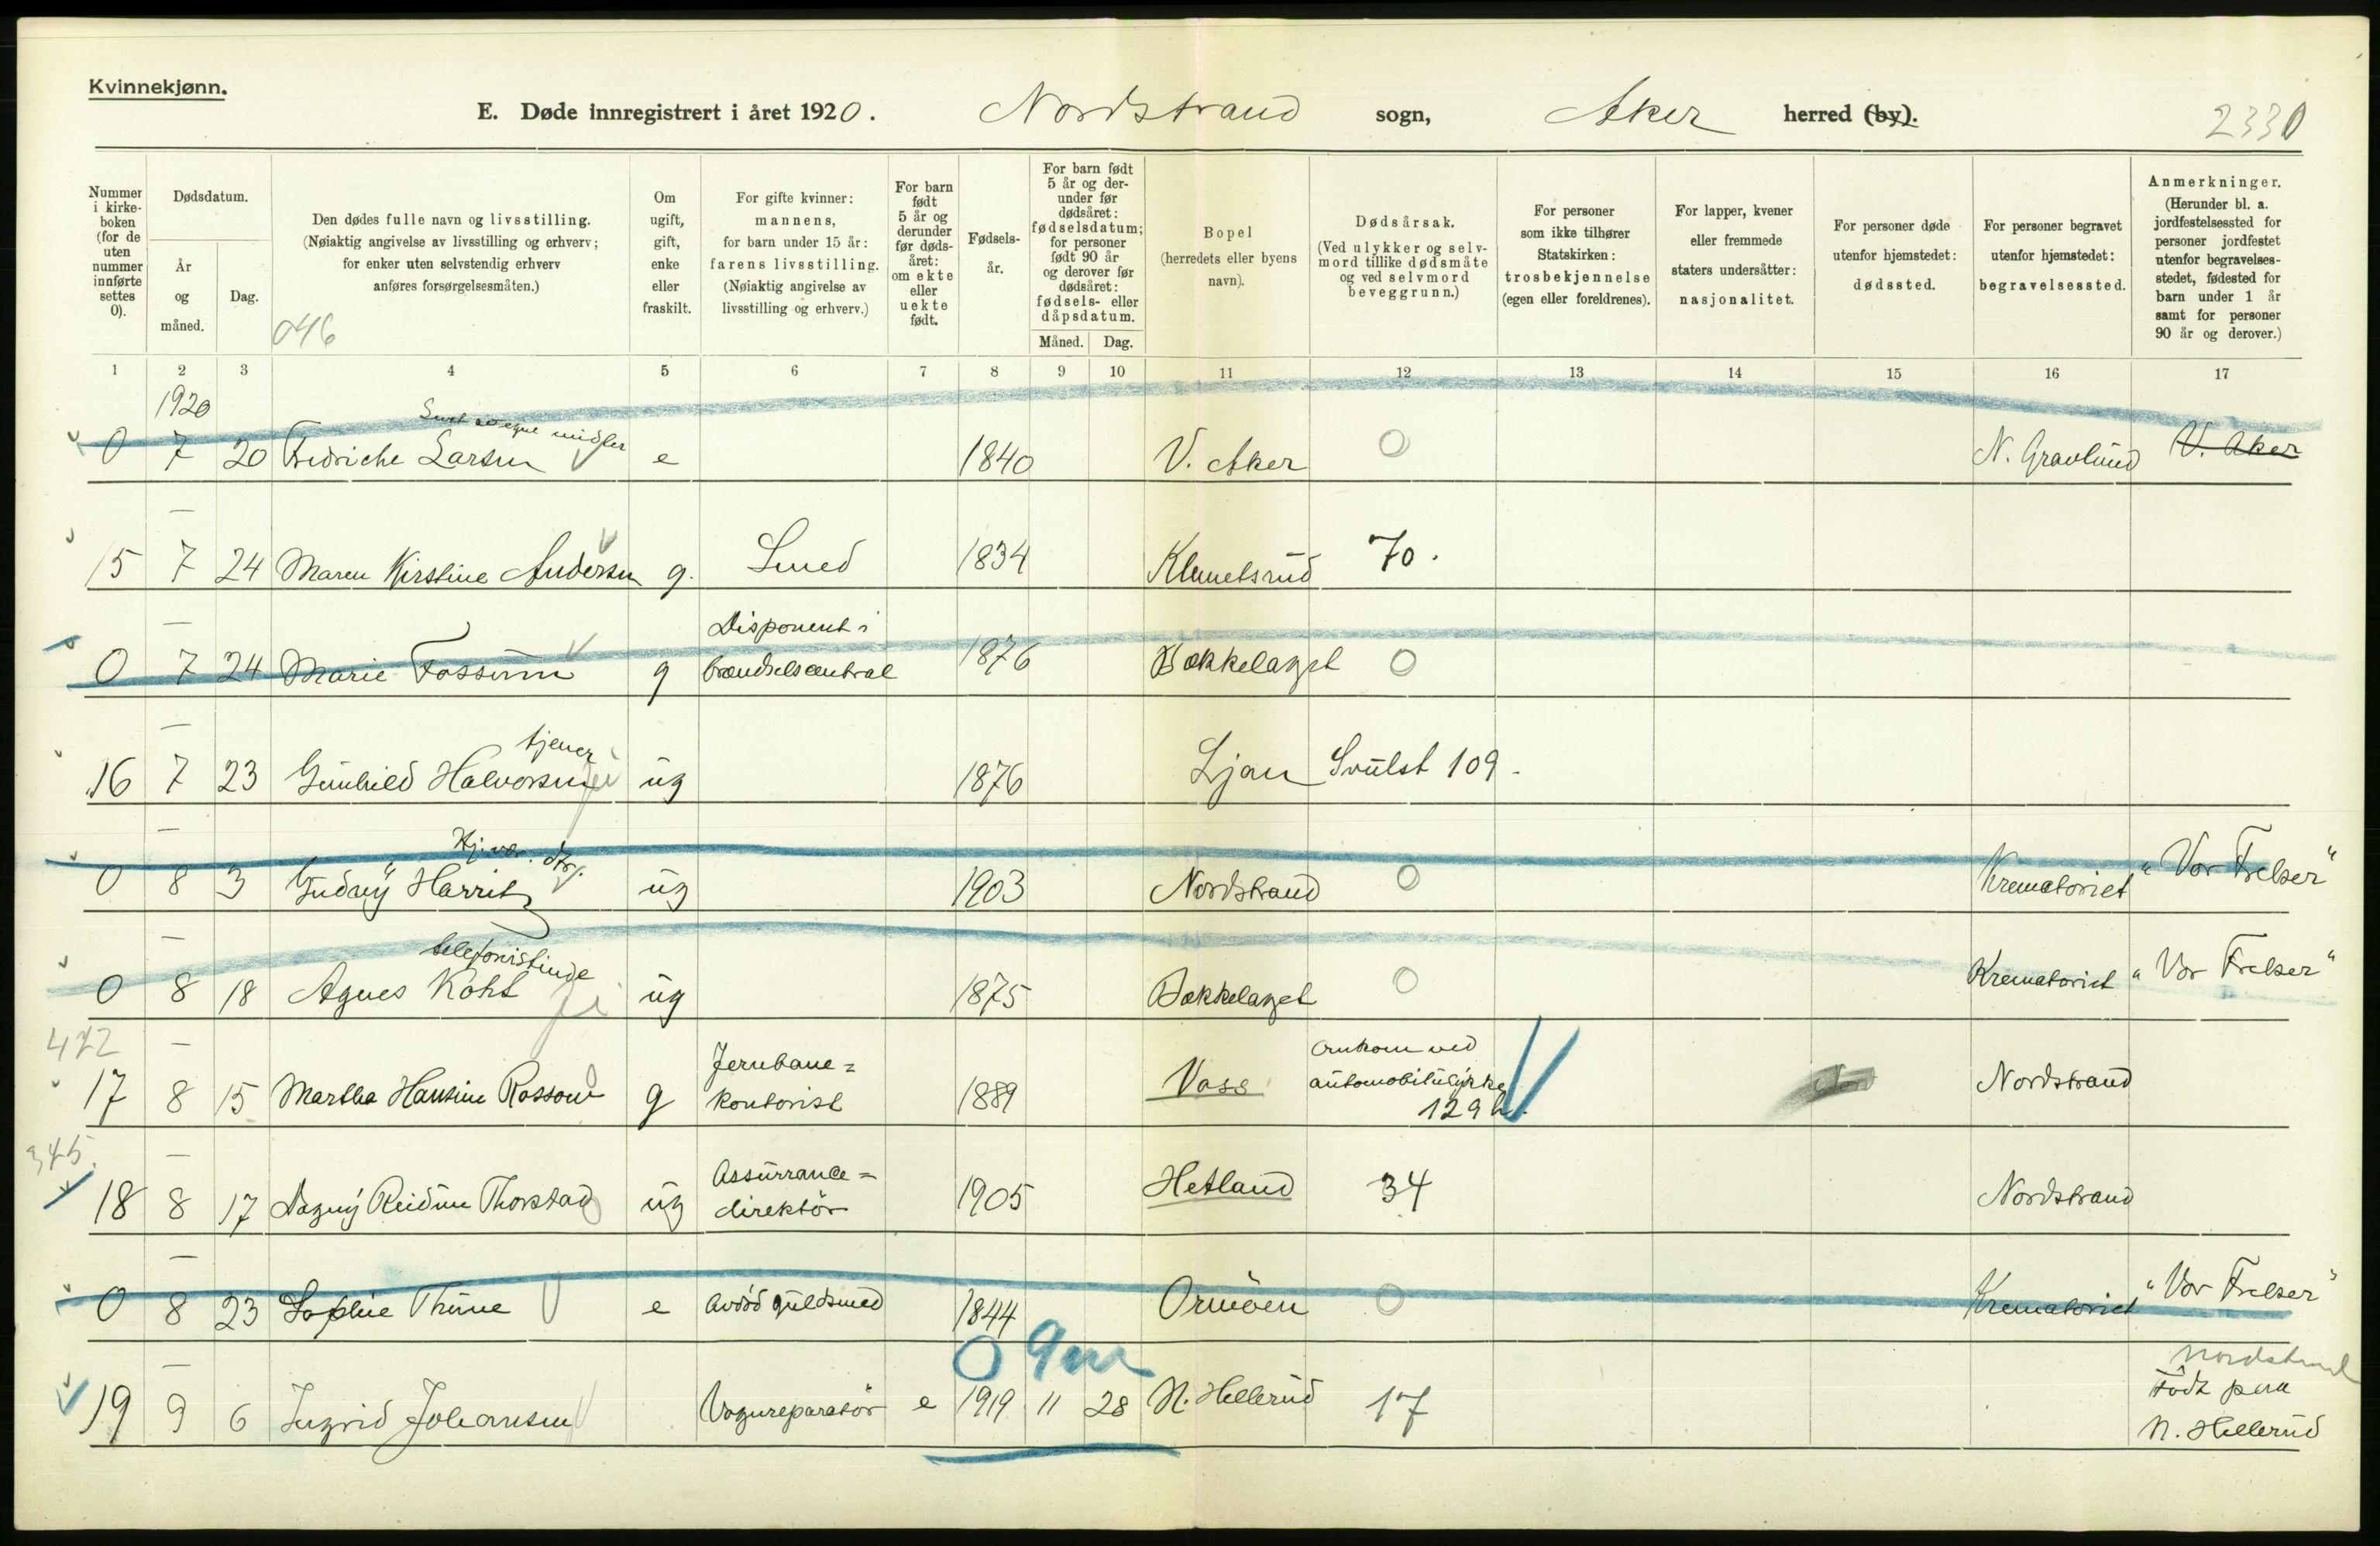 Kvinnekjønn.
E. Døde innregistrert i året 1920. Nordstrand sogn, Aker herred (by). 2330
Nummer i kirke-boken (for de uten nummer innførte settes 0).
Dødsdatum.
År og måned.
Dag.
Den dødes fulle navn og livsstilling.
(Nøiaktig angivelse av livsstilling og erhverv;
for enker uten selvstendig erhverv
anføres forsørgelsesmåten.)
046
Om ugift, gift, enke eller fraskilt.
For gifte kvinner:
mannens,
for barn under 15 år:
farens livsstilling.
(Nøiaktig angivelse av
livsstilling og erhverv.)
For barn født 5 år og derunder før døds-året: om ekte eller uekte født.
Fødsels-år.
For barn født 5 år og der-under før dødsåret: fødselsdatum; for personer født 90 år og derover før dødsåret: fødsels- eller dåpsdatum.
Måned. Dag.
Bopel
(herredets eller byens
navn).
Dødsårsak.
(Ved ulykker og selv-
mord tillike dødsmåte
og ved selvmord
beveggrunn.)
For personer
som ikke tilhører
Statskirken:
trosbekjennelse
(egen eller foreldrenes).
For lapper, kvener
eller fremmede
staters undersåtter:
nasjonalitet.
For personer døde
utenfor hjemstedet:
dødssted.
For personer begravet
utenfor hjemstedet:
begravelsessted.
Anmerkninger.
(Herunder bl. a.
jordfestelsessted for
personer jordfestet
utenfor begravelses-
stedet, fødested for
barn under 1 år
samt for personer
90 år og derover.)
1 2 3 4 5 6 7 8 9 10 11 12 13 14 15 16 17
1920
midler
0 7 20 Fredriche Larsen e 1840 V. Aker 0 N. Gravlund V. Aker
15 7 24 Maren Kirstine Andersen g. Smed 1834 Klemetsrud 70.
Disponent i
0 7 24 Marie Fossum g brændselscentral 1876 Bækkelaget 0
tjener
16 7 23 Gunhild Halvorsen ug 1876 Ljan Svulst 109.
0 8 3 Gudny Harritz ug 1903 Nordstrand 0 Krematoriet "Vor Frelser"
telefonistinde
0 8 18 Agnes Koht ug 1875 Bækkelaget 0 Krematoriet "Vor Frelser"
422
17 8 15 Martha Hansine Rossow g Jernbane=
kontorist 1889 Voss Omkom ved
automobilulykke
129 Nordstrand
345.
18 8 17 Dagny Reidun Thorstad ug Assurrance=
direktör 1905 Hetland 34 Nordstrand
0 8 23 Sophie Thune e Avdöd guldsmed 1844 Ormöen 0 Krematoriet "Vor Frelser"
0 9m
Nordstrand
19 9 6 Ingrid Johansen Vognreparatör e 1919 11 28 N. Hellerud 17 Födt paa
N. Hellerud